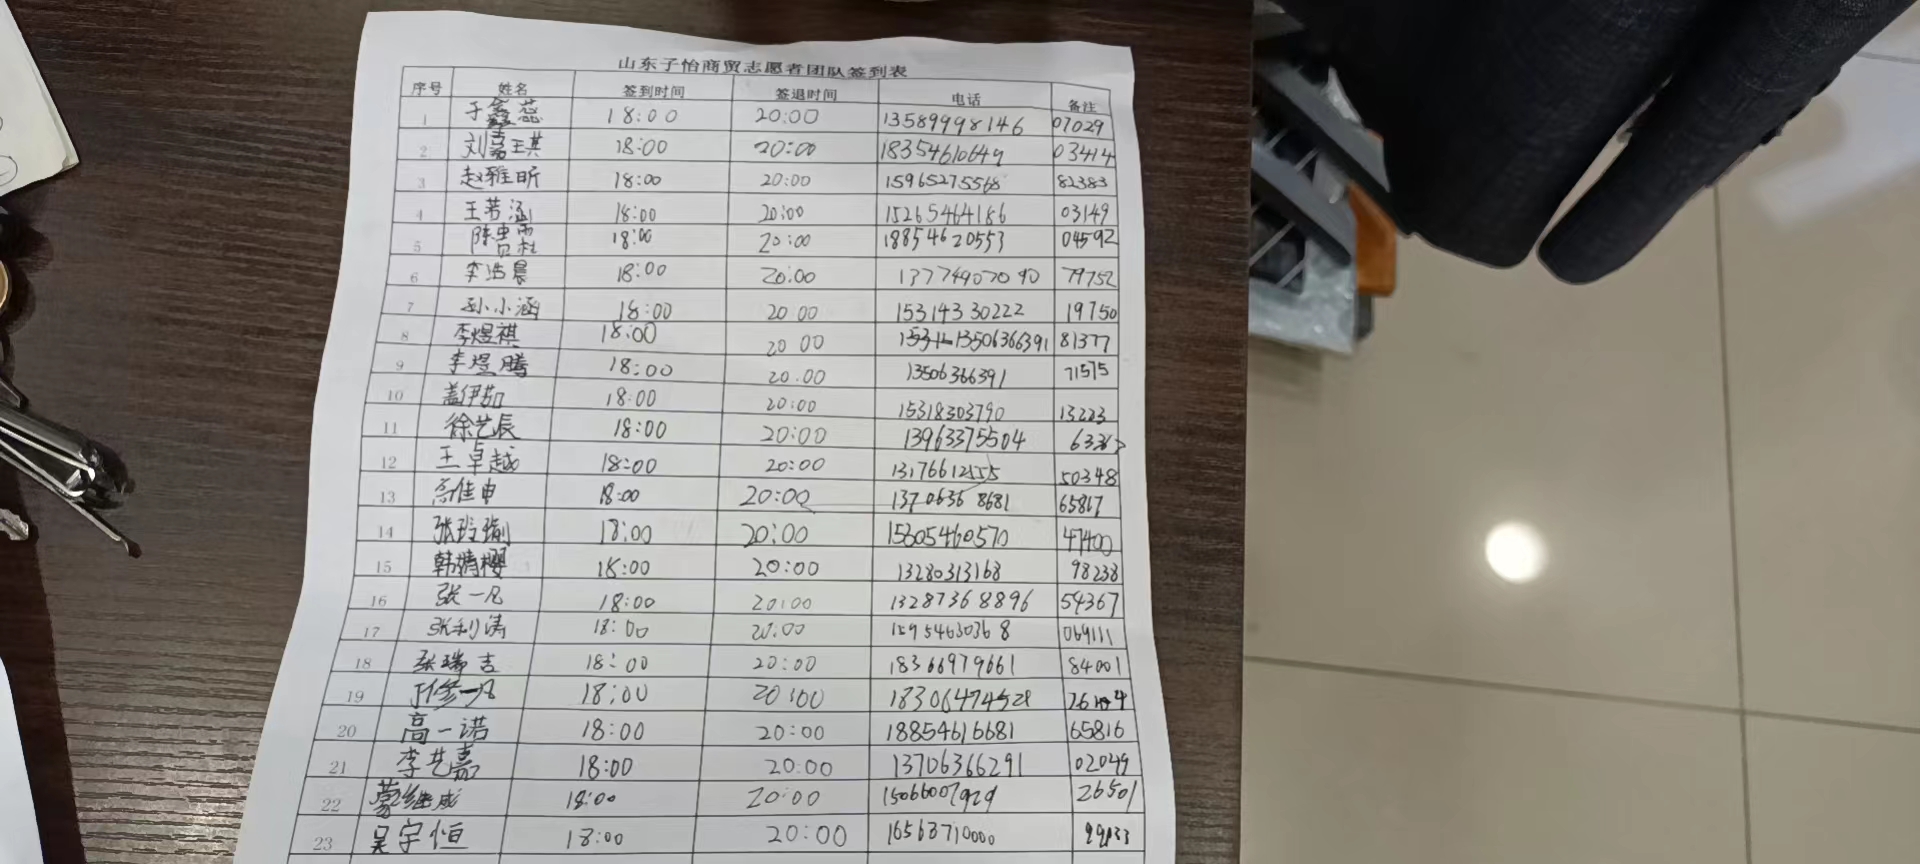 山东子怡商贸志愿者团队签到表
序号 姓名 签到时间 签退时间 电话 备注
1 于鑫蕊 18:00 20:00 13589998146 07029
2 刘嘉琪 18:00 20:00 18354610649 03414
3 赵雅昕 18:00 20:00 15965275568 82383
4 王若涵 18:00 20:00 15265464186 03149
5 陈 18:00 20:00 18854620553 04592
6 李浩晨 18:00 20:00 13774907090 79752
7 孙小涵 18:00 20 00 15314330222 19750
8 李煜祺 18:00 20 00 13506366391 81377
9 李煜腾 18:00 20.00 13506366391 71575
10 盖伊茹 18:00 20:00 15318303790 13223
11 徐艺辰 18:00 20:00 13963375504
12 王卓越 18:00 20:00 13176612555 50348
13 佳申 18:00 20:00 13706368681 65817
14 张玲瑜 18:00 20:00 15605460570 47400
15 韩婧樱 18:00 20:00 13280313168 98238
16 张一凡 18:00 20:00 13287368896 54367
17 张利涛 18:00 20:00 15954630368 069111
18 张瑞吉 18:00 20:00 18366979661 84001
19 一凡 18:00 20:00 18306474528
20 高一诺 18:00 20:00 18854616681 65816
21 李艺嘉 18:00 20:00 13706366291 02049
22 蒙继威 18:00 20:00 15066007929 26501
23 吴宇恒 18:00 20:00 16563710000